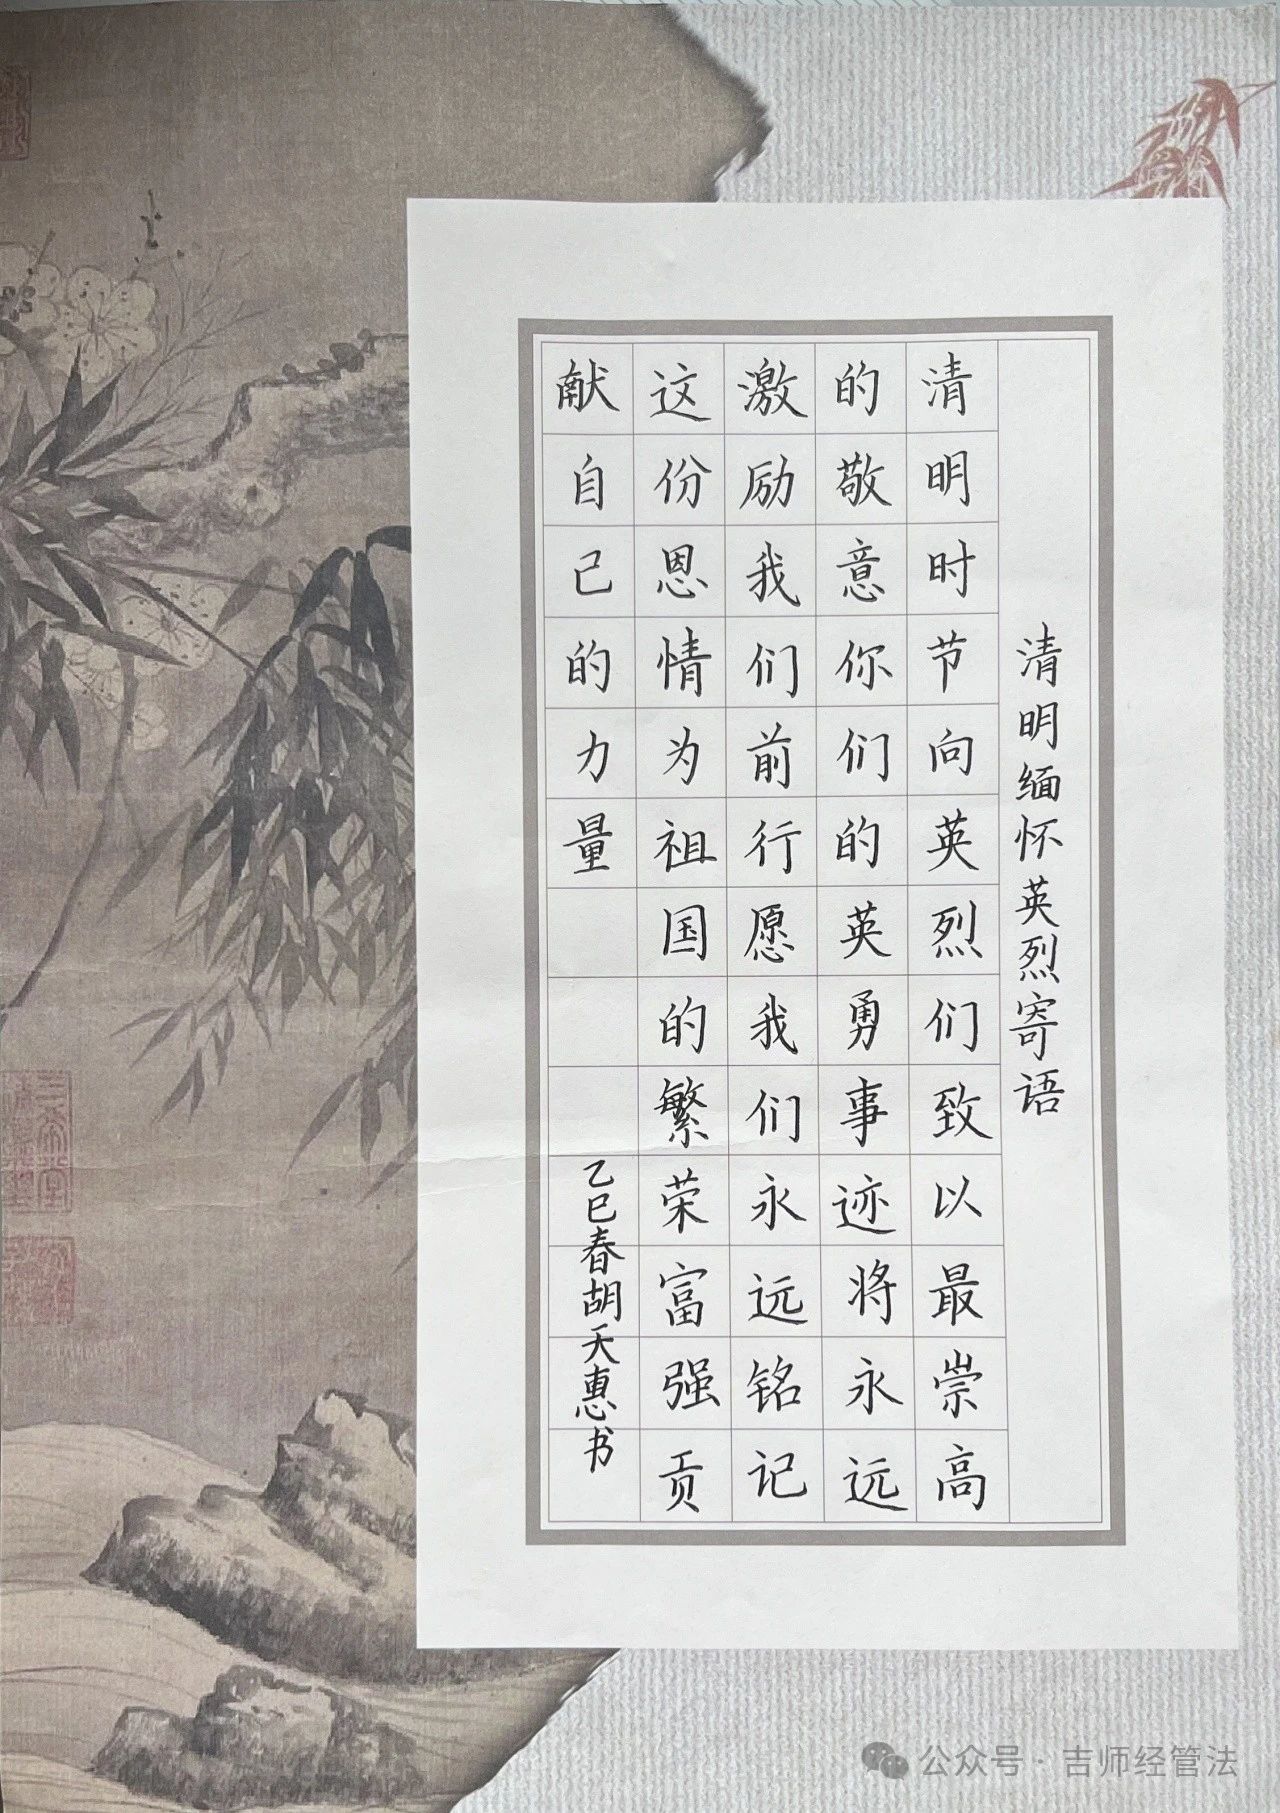 清明缅怀英烈寄语
清明时节向英烈们致以最崇高
的敬意你们的英勇事迹将永远
激励我们前行愿我们永远铭记
这份恩情为祖国的繁荣富强贡
献自己的力量
乙巳春胡天惠书
公众号·吉师经管法